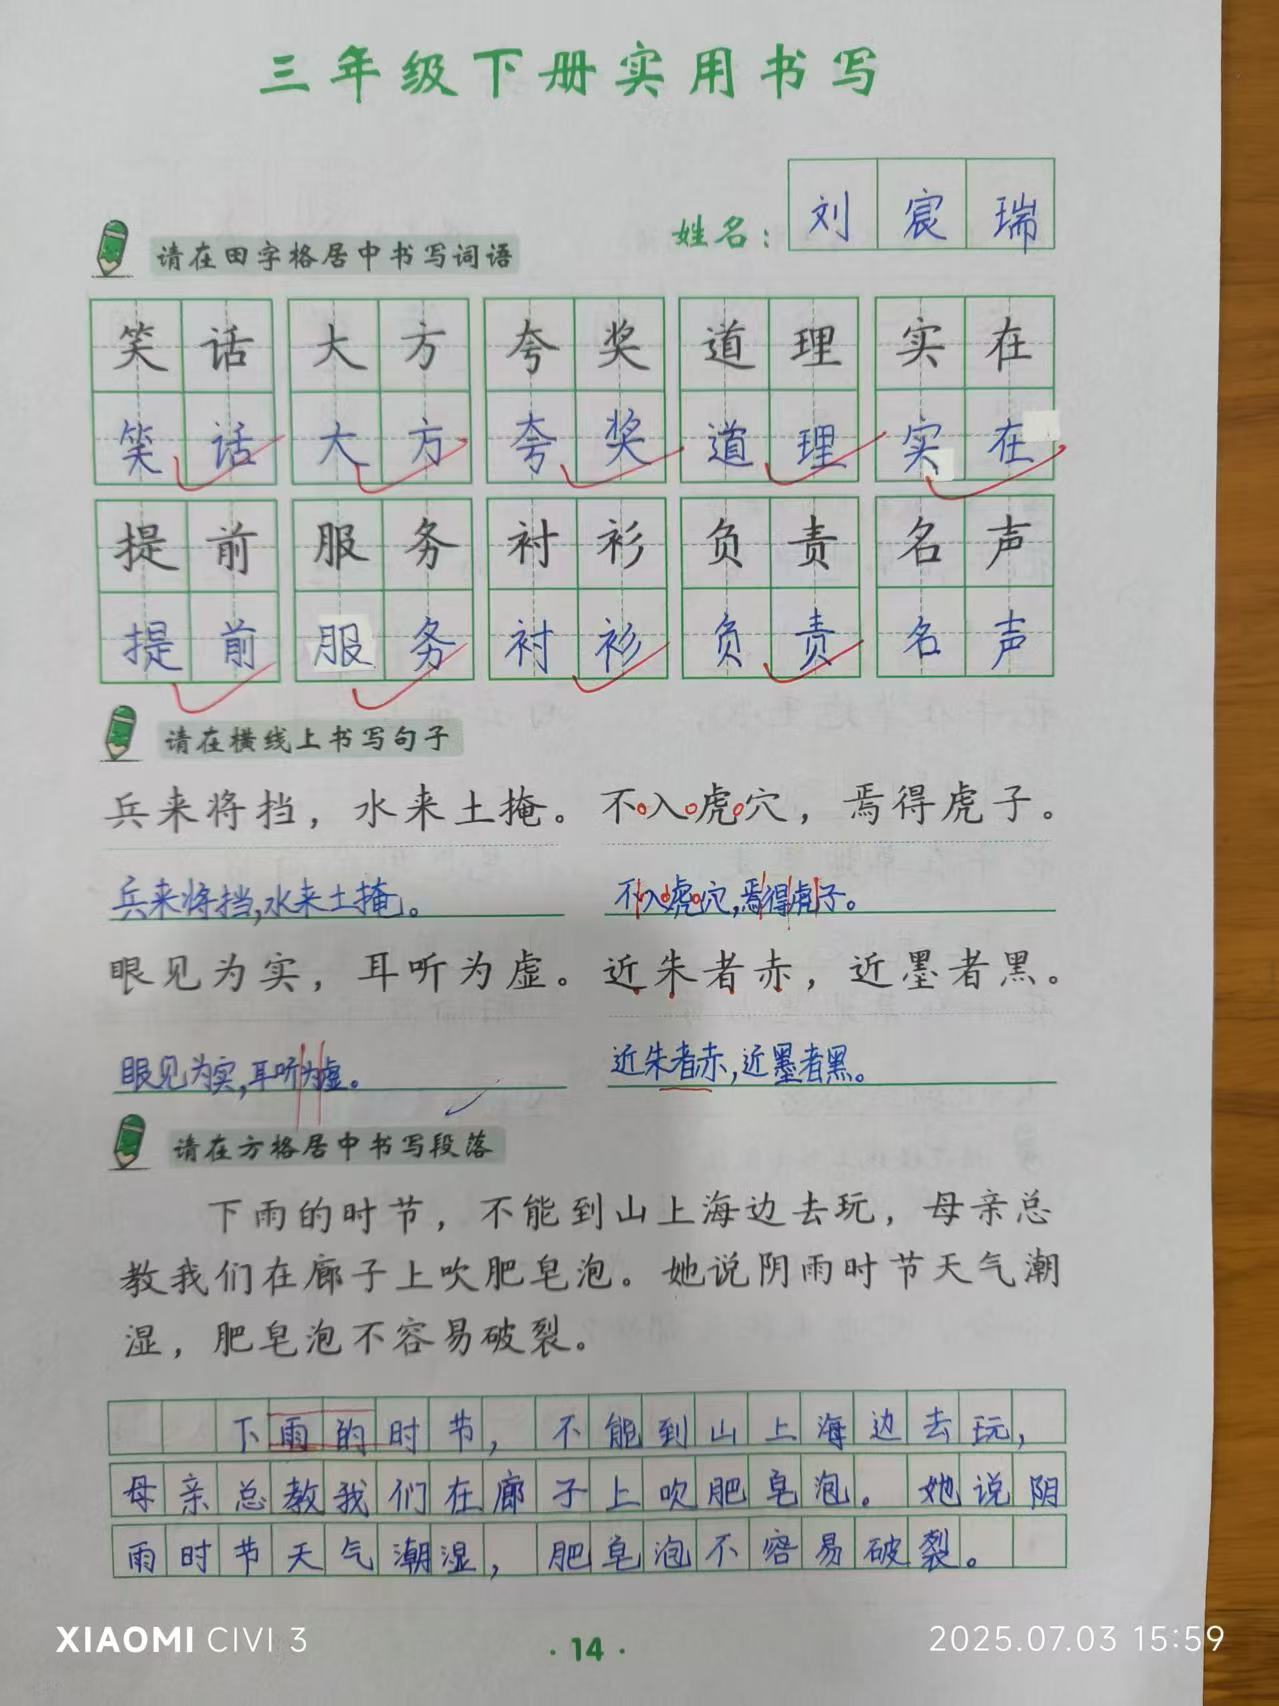 三年级下册实用书写
姓名：刘宸瑞
请在田字格居中书写词语
笑话 大方 夸奖 道理 实在
笑话 大方 夸奖 道理 实在
提前 服务 衬衫 负责 名声
提前 服务 衬衫 负责 名声
请在横线上书写句子
兵来将挡，水来土掩。不入虎穴，焉得虎子。
兵来将挡,水来土掩。 不入虎穴,焉得虎子。
眼见为实，耳听为虚。近朱者赤，近墨者黑。
眼见为实,耳听为虚。 近朱者赤,近墨者黑。
请在方格居中书写段落
下雨的时节，不能到山上海边去玩，母亲总
教我们在廊子上吹肥皂泡。她说阴雨时节天气潮
湿，肥皂泡不容易破裂。
下雨的时节，不能到山上海边去玩，
母亲总教我们在廊子上吹肥皂泡。她说阴
雨时节天气潮湿，肥皂泡不容易破裂。
·14·
XIAOMI CIVI 3
2025.07.03 15:59